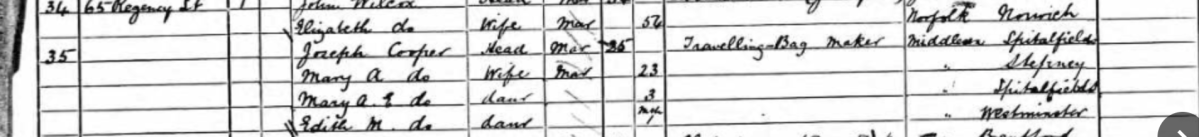 34 65 Regency St 1 John Wilcox Head Mar
Elizabeth do Wife Mar 54 Norfolk Norwich
35 Joseph Cooper Head Mar 25 Travelling Bag Maker Middlesex Spitalfields
Mary A do Wife Mar 23 " Stepney
Mary A. E do daur 3 " Spitalfields
Edith M. do daur " Westminster